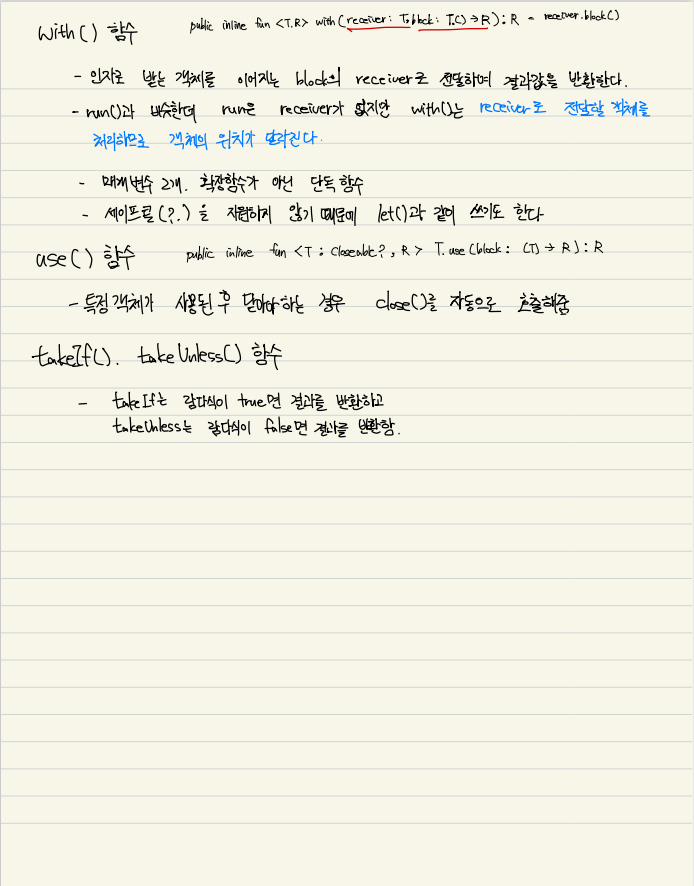 with() 함수 public inline fun <T.R> with(receiver: T, block: T.() → R): R = receiver.block()
- 인자로 받는 객체를 이어지는 block의 receiver로 전달하며 결과값을 반환한다.
- run()과 비슷한데 run은 receiver가 없지만 with()는 receiver로 전달할 객체를
처리하므로 객체의 위치가 달라진다.
- 매개변수 2개. 확장함수가 아닌 단독 함수
- 세이프콜(?.)을 지원하지 않기 때문에 let()과 같이 쓰기도 한다
use() 함수 public inline fun <T : Closeable?, R> T.use(block: (T) → R): R
- 특정 객체가 사용된 후 닫아야하는 경우 close()를 자동으로 호출해줌
takeIf(). takeUnless() 함수
- takeIf는 람다식이 true면 결과를 반환하고
takeUnless는 람다식이 false면 결과를 반환함.